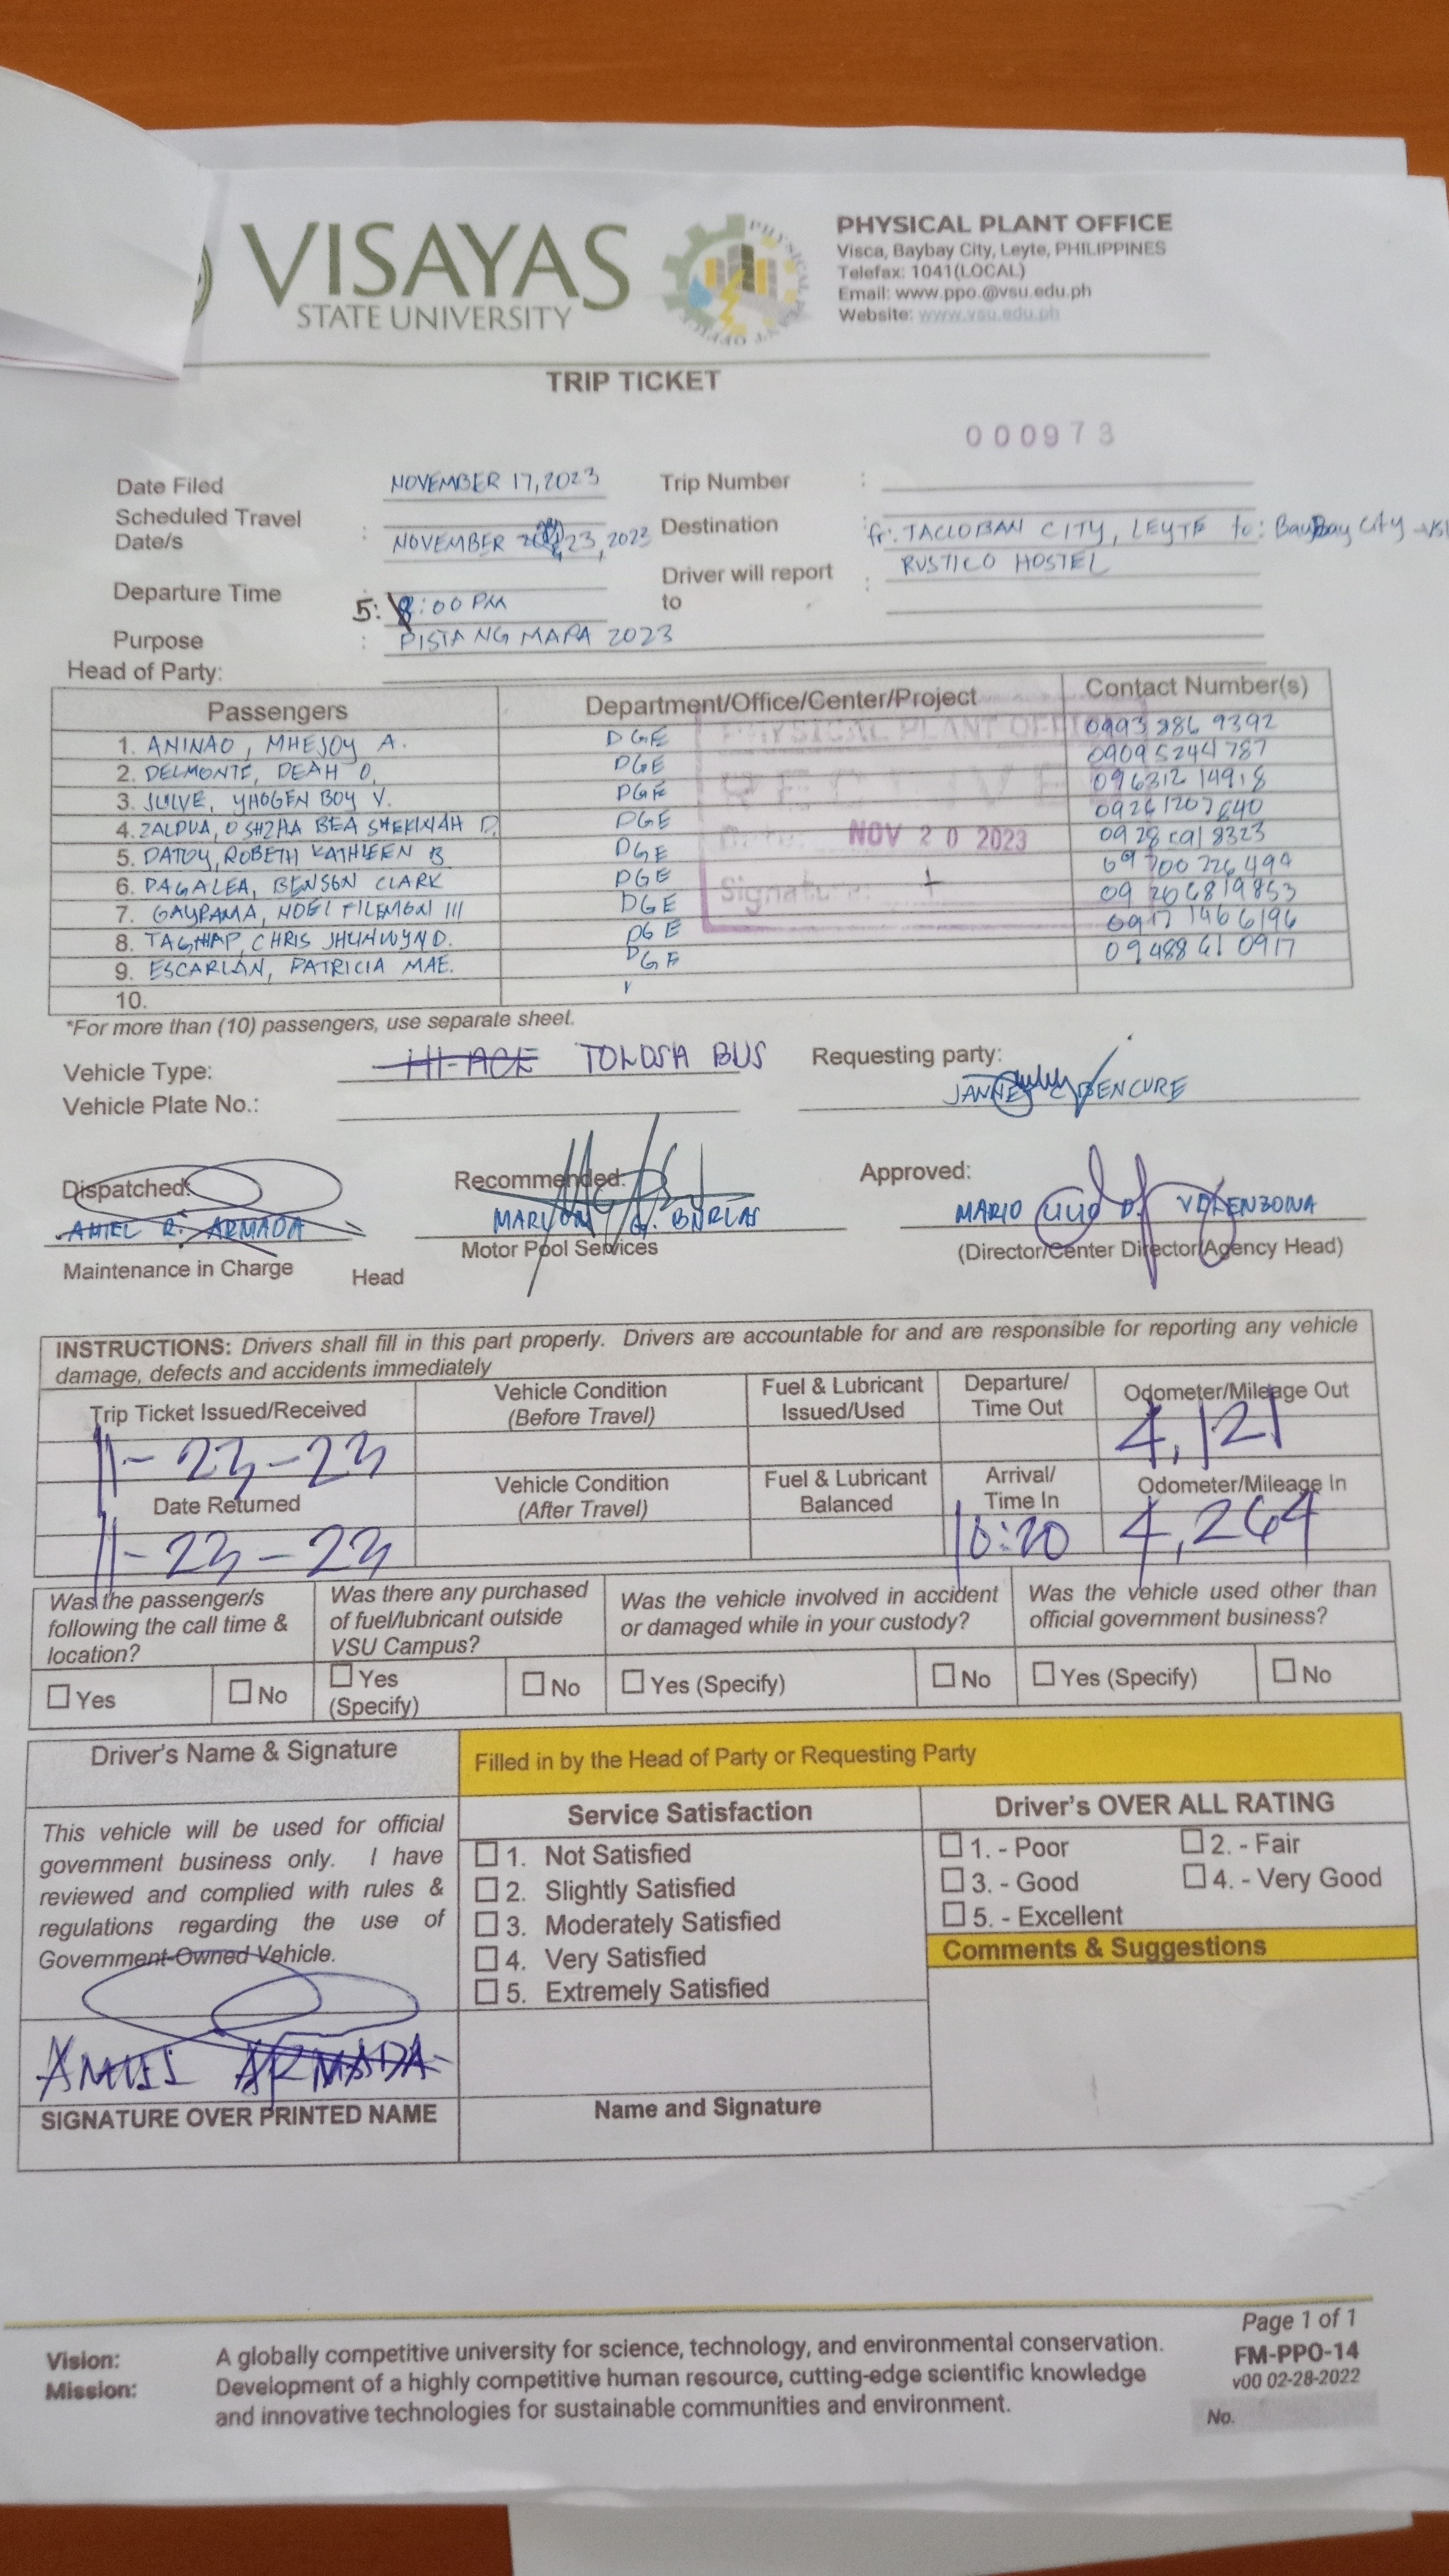 VISAYAS
STATE UNIVERSITY
PHYSICAL PLANT OFFICE
Visca, Baybay City, Leyte, PHILIPPINES
Telefax: 1041(LOCAL)
Email: www.ppo.@vsu.edu.ph
Website: www.vsu.edu.ph
TRIP TICKET
000973
Date Filed NOVEMBER 17, 2023 Trip Number :
Scheduled Travel Date/s : NOVEMBER 23, 2023 Destination fr: TACLOBAN CITY, LEYTE to: BayBay City
RUSTICO HOSTEL
Departure Time 5:00 PM Driver will report to :
Purpose : PISTA NG MAPA 2023
Head of Party:
Passengers Department/Office/Center/Project Contact Number(s)
1. ANINAO, MHEJOY A. DGE 0993 286 9392
2. DELMONTE, DEAH O. DGE 09095244787
3. JULVE, YHOGEN BOY V. DGE 096312 14918
4. ZALDUA, BEA SHEKINAH D. DGE 09261207640
5. DATOY, ROBETH KATHLEEN B DGE 8323
6. PAGALEA, BENSON CLARK DGE 09700726499
7. GAYRAMA, NOEL FILEMON III DGE 09206819853
8. CHRIS DGE 0917 1466196
9. ESCARLAN, PATRICIA MAE. DGE 0948861 0917
10.
PHYSICAL PLANT OFFICE
RECEIVED
Date: NOV 20 2023
Signature:
*For more than (10) passengers, use separate sheet.
Vehicle Type: HI-ACE TOLOSA BUS Requesting party:
Vehicle Plate No.: BENCURE
Dispatched: Recommended: Approved:
AMIEL R. ARMADA MARLON G. BURLAS MARIO D. VALENZONA
Maintenance in Charge Head Motor Pool Services (Director/Center Director/Agency Head)
INSTRUCTIONS: Drivers shall fill in this part properly. Drivers are accountable for and are responsible for reporting any vehicle
damage, defects and accidents immediately
Trip Ticket Issued/Received Vehicle Condition (Before Travel) Fuel & Lubricant Issued/Used Departure/ Time Out Odometer/Mileage Out
11-23-23 4,121
Date Returned Vehicle Condition (After Travel) Fuel & Lubricant Balanced Arrival/ Time In Odometer/Mileage In
11-23-23 10:20 4,264
Was the passenger/s following the call time & location? Was there any purchased of fuel/lubricant outside VSU Campus? Was the vehicle involved in accident or damaged while in your custody? Was the vehicle used other than official government business?
Yes No Yes (Specify) No Yes (Specify) No Yes (Specify) No
Driver's Name & Signature Filled in by the Head of Party or Requesting Party
This vehicle will be used for official
government business only. I have
reviewed and complied with rules &
regulations regarding the use of
Government-Owned Vehicle.
AMIEL ARMADA
SIGNATURE OVER PRINTED NAME
Service Satisfaction
1. Not Satisfied
2. Slightly Satisfied
3. Moderately Satisfied
4. Very Satisfied
5. Extremely Satisfied
Name and Signature
Driver's OVER ALL RATING
1. - Poor 2. - Fair
3. - Good 4. - Very Good
5. - Excellent
Comments & Suggestions
Vision: A globally competitive university for science, technology, and environmental conservation.
Mission: Development of a highly competitive human resource, cutting-edge scientific knowledge
and innovative technologies for sustainable communities and environment.
Page 1 of 1
FM-PPO-14
v00 02-28-2022
No.